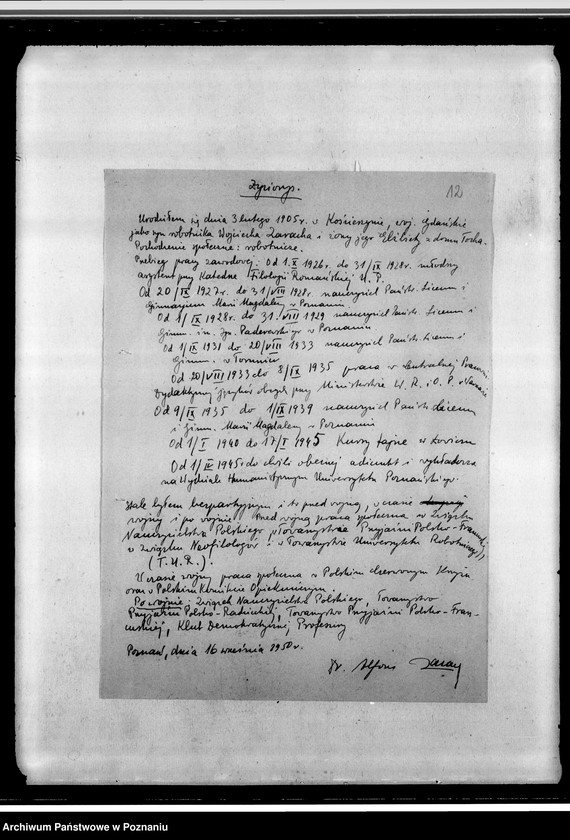 Życiorys.
12
Urodziłem się dnia 3 lutego 1905 r. w Kościerzynie, woj. Gdańskie
jako syn robotnika Wojciecha Zaracha i żony jego Elżbiety z domu Tocha.
Pochodzenie społeczne: robotnicze.
Przebieg pracy zawodowej: Od 1.X 1926r. do 31/IX 1928r. młodszy
asystent przy Katedrze Filologii Romańskiej U.P.
Od 20/IX 1927 r. do 31/VIII 1928r. nauczyciel Państ. Liceum i
Gimnazjum Marii Magdaleny w Poznaniu
Od 1/IX 1928r. do 31.VIII 1929 nauczyciel Państ. Liceum i
Gimn. im. Ign. Paderewskiego w Poznaniu
Od 1/IX 1931 do 20/VIII 1933 nauczyciel Państ. Liceum i
Gimn. w Toruniu
Od 20/VIII 1933 do 8/IX 1935 praca w Centralnej Pracowni
Dydaktycznej języków obcych przy Ministerstwie W. R. i O. P. w Warszawie
Od 9/IX 1935 do 1/IX 1939 nauczyciel Państ. Liceum
i Gimn. Marii Magdaleny w Poznaniu
Od 1/I 1940 do 17/I 1945 Kursy tajne w
Od 1/IV 1945r. do chwili obecnej adiunkt i wykładowca
na Wydziale Humanistycznym Uniwersytetu Poznańskiego.
Stale byłem bezpartyjnym i to przed wojną, w czasie
wojny i po wojnie. Przed wojną praca społeczna w Związku
Nauczycielstwa Polskiego, Towarzystwie Przyjaźni Polsko-Francuskiej,
w Związku Neofilologów i w Towarzystwie Uniwersytetu Robotniczego
(T.U.R.).
W czasie wojny praca społeczna w Polskim Czerwonym Krzyżu
oraz w Polskim Komitecie Opiekuńczym.
Po wojnie: Związek Nauczycielstwa Polskiego, Towarzystwo
Przyjaźni Polsko-Radzieckiej, Towarzystwo Przyjaźni Polsko-Fran-
cuskiej, Klub Demokratycznej Profesury
Poznań, dnia 16 września 1950 r.
Dr. Alfons
Archiwum Państwowe w Poznaniu